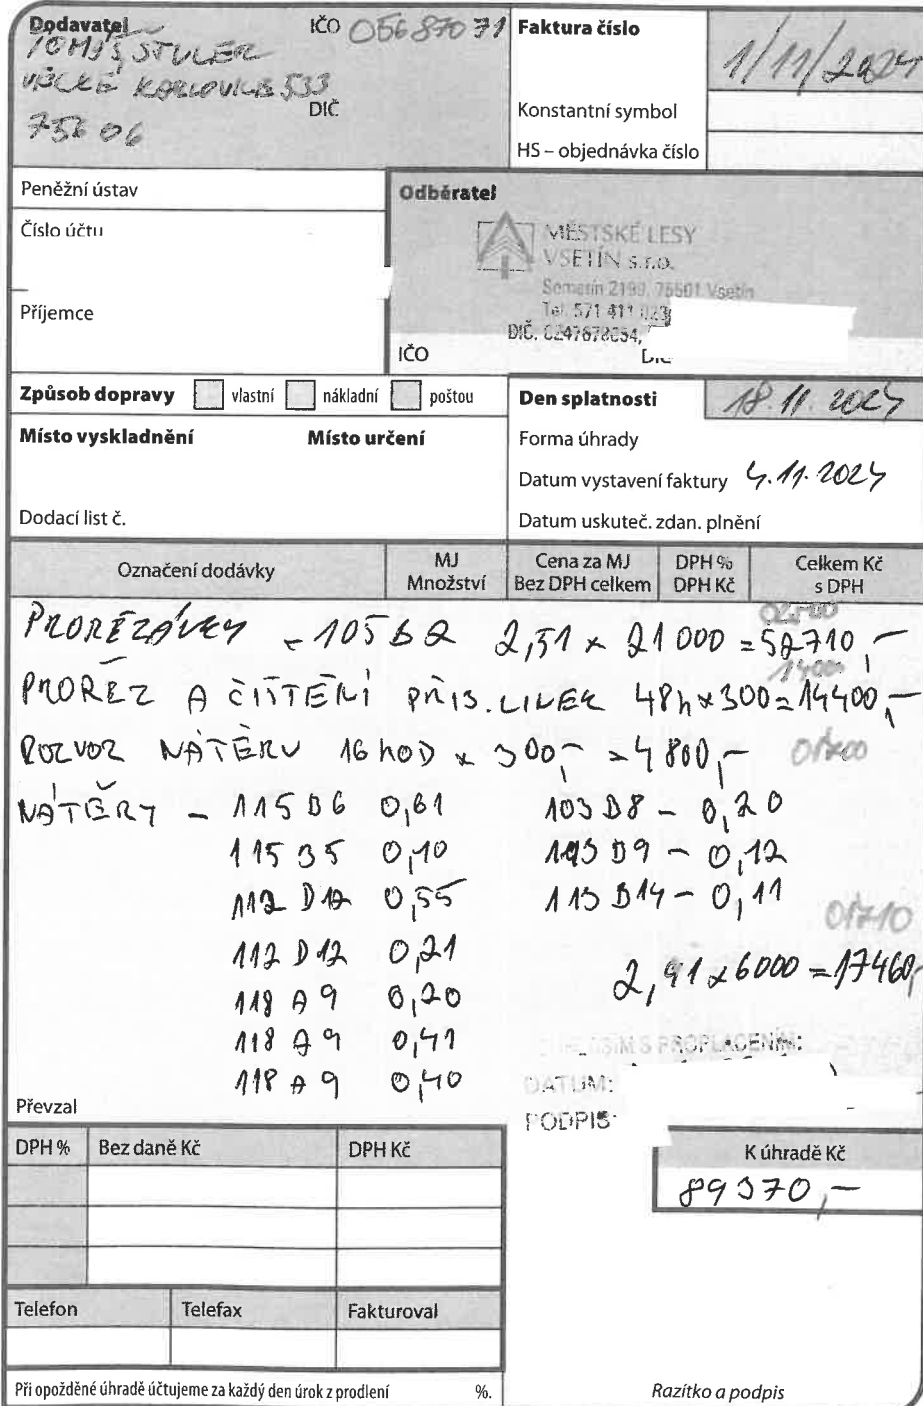 Dodavatel IČO 05687071
TOMÁŠ STULER
VELKÉ KARLOVICE 533
DIČ
756 06
Faktura číslo 1/11/2024
Konstantní symbol
HS – objednávka číslo
Peněžní ústav
Číslo účtu
Příjemce
Odběratel
MĚSTSKÉ LESY
VSETÍN s.r.o.
Semetín 2199, 75501 Vsetín
Tel. 571 411 023
DIČ.
IČO DIČ
Způsob dopravy vlastní nákladní poštou
Místo vyskladnění Místo určení
Dodací list č.
Den splatnosti 18.11.2024
Forma úhrady
Datum vystavení faktury 4.11.2024
Datum uskuteč. zdan. plnění
Označení dodávky MJ Množství Cena za MJ Bez DPH celkem DPH % DPH Kč Celkem Kč s DPH
PROŘEZÁVKY - 105 B 2 2,51 x 21 000 = 52710,-
PROŘEZ A ČIŠTĚNÍ PŘIS. LINEK 48h x 300 = 14400,-
ROZVOZ NÁTĚRU 16 HOD x 300,- = 4 800,-
NÁTĚRY - 115 B6 0,61 103 D8 - 0,20
115 B5 0,10 193 D9 - 0,12
112 D12 0,55 113 B14 - 0,11
01710
112 D 12 0,21
2,91 x 6000 = 17460,-
118 A 9 0,20
118 A 9 0,41
S PROPLACENÍM:
118 A 9 0,40
DATUM:
PODPIS:
Převzal
DPH % Bez daně Kč DPH Kč
K úhradě Kč
89370,-
Telefon Telefax Fakturoval
Při opožděné úhradě účtujeme za každý den úrok z prodlení %.
Razítko a podpis